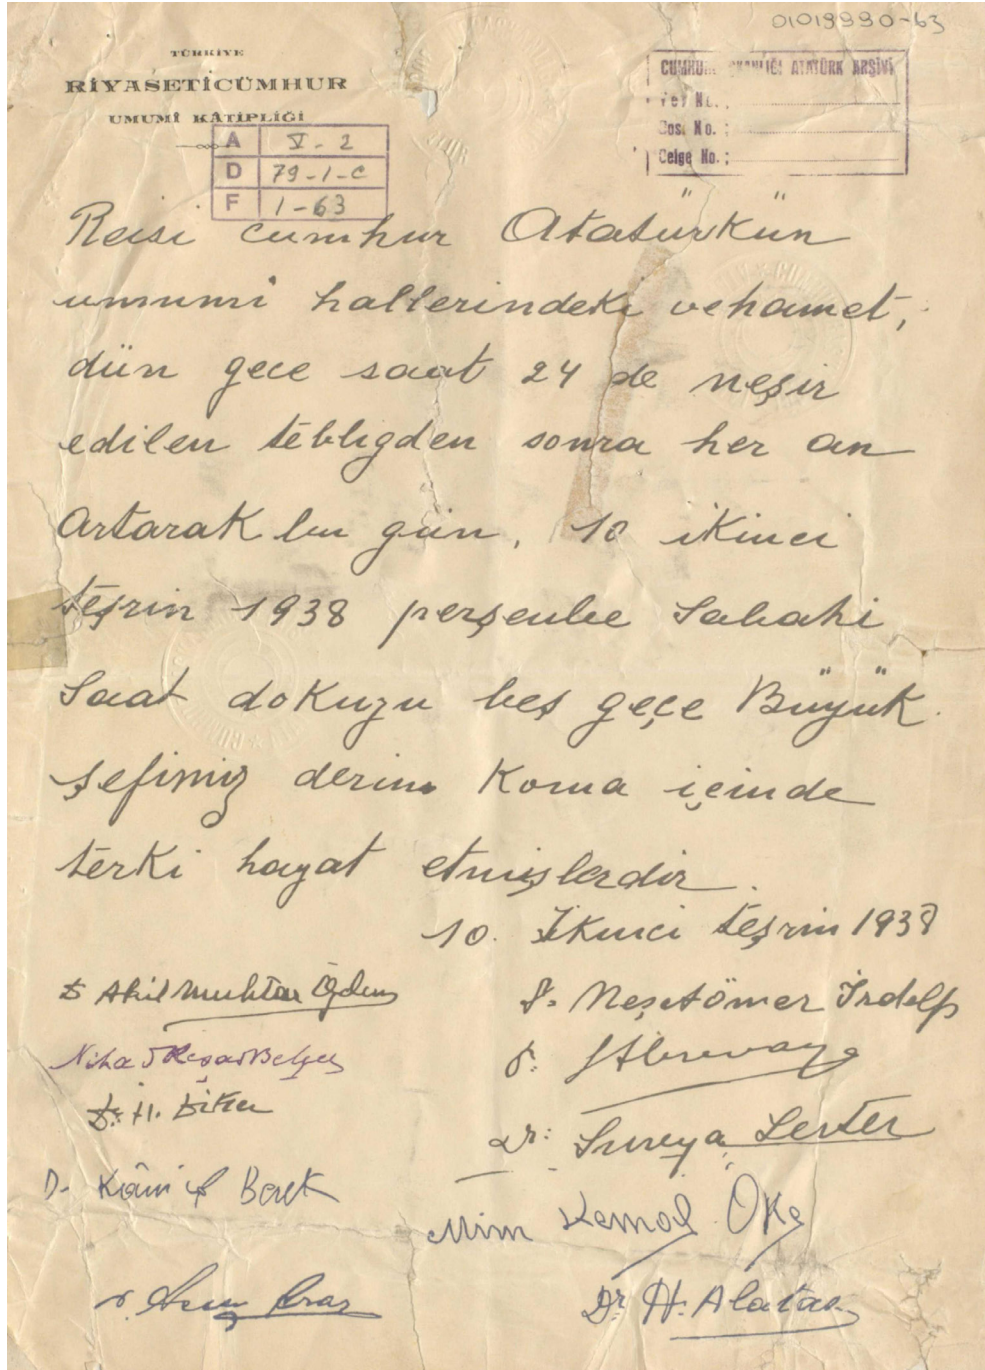 01019990-63
TÜRKİYE
RİYASETİCÜMHUR
UMUMİ KÂTİPLİĞİ
CUMHURBAŞKANLIĞI ATATÜRK ARŞİVİ
Yer No. :
Dos. No. :
Belge No. :
A V-2
D 79-1-C
F 1-63
Reisi cumhur Atatürkün
umumi hallerindeki vehamet,
dün gece saat 24 de neşir
edilen tebligden sonra her an
Artarak bu gün, 10 ikinci
teşrin 1938 perşenbe Sabahi
Saat dokuzu beş geçe Büyük
şefimiz derin Koma içinde
terki hayat etmişlerdir.
10. İkinci teşrin 1938
Dr Akil Muhtar Özden
Dr. Neşetömer İrdelp
Nihad Reşad Belger
Dr. H. Diker
Dr: Sureya Serter
Dr. Kâmil Berk
Mim Kemal Öke
Dr. H. Alataş